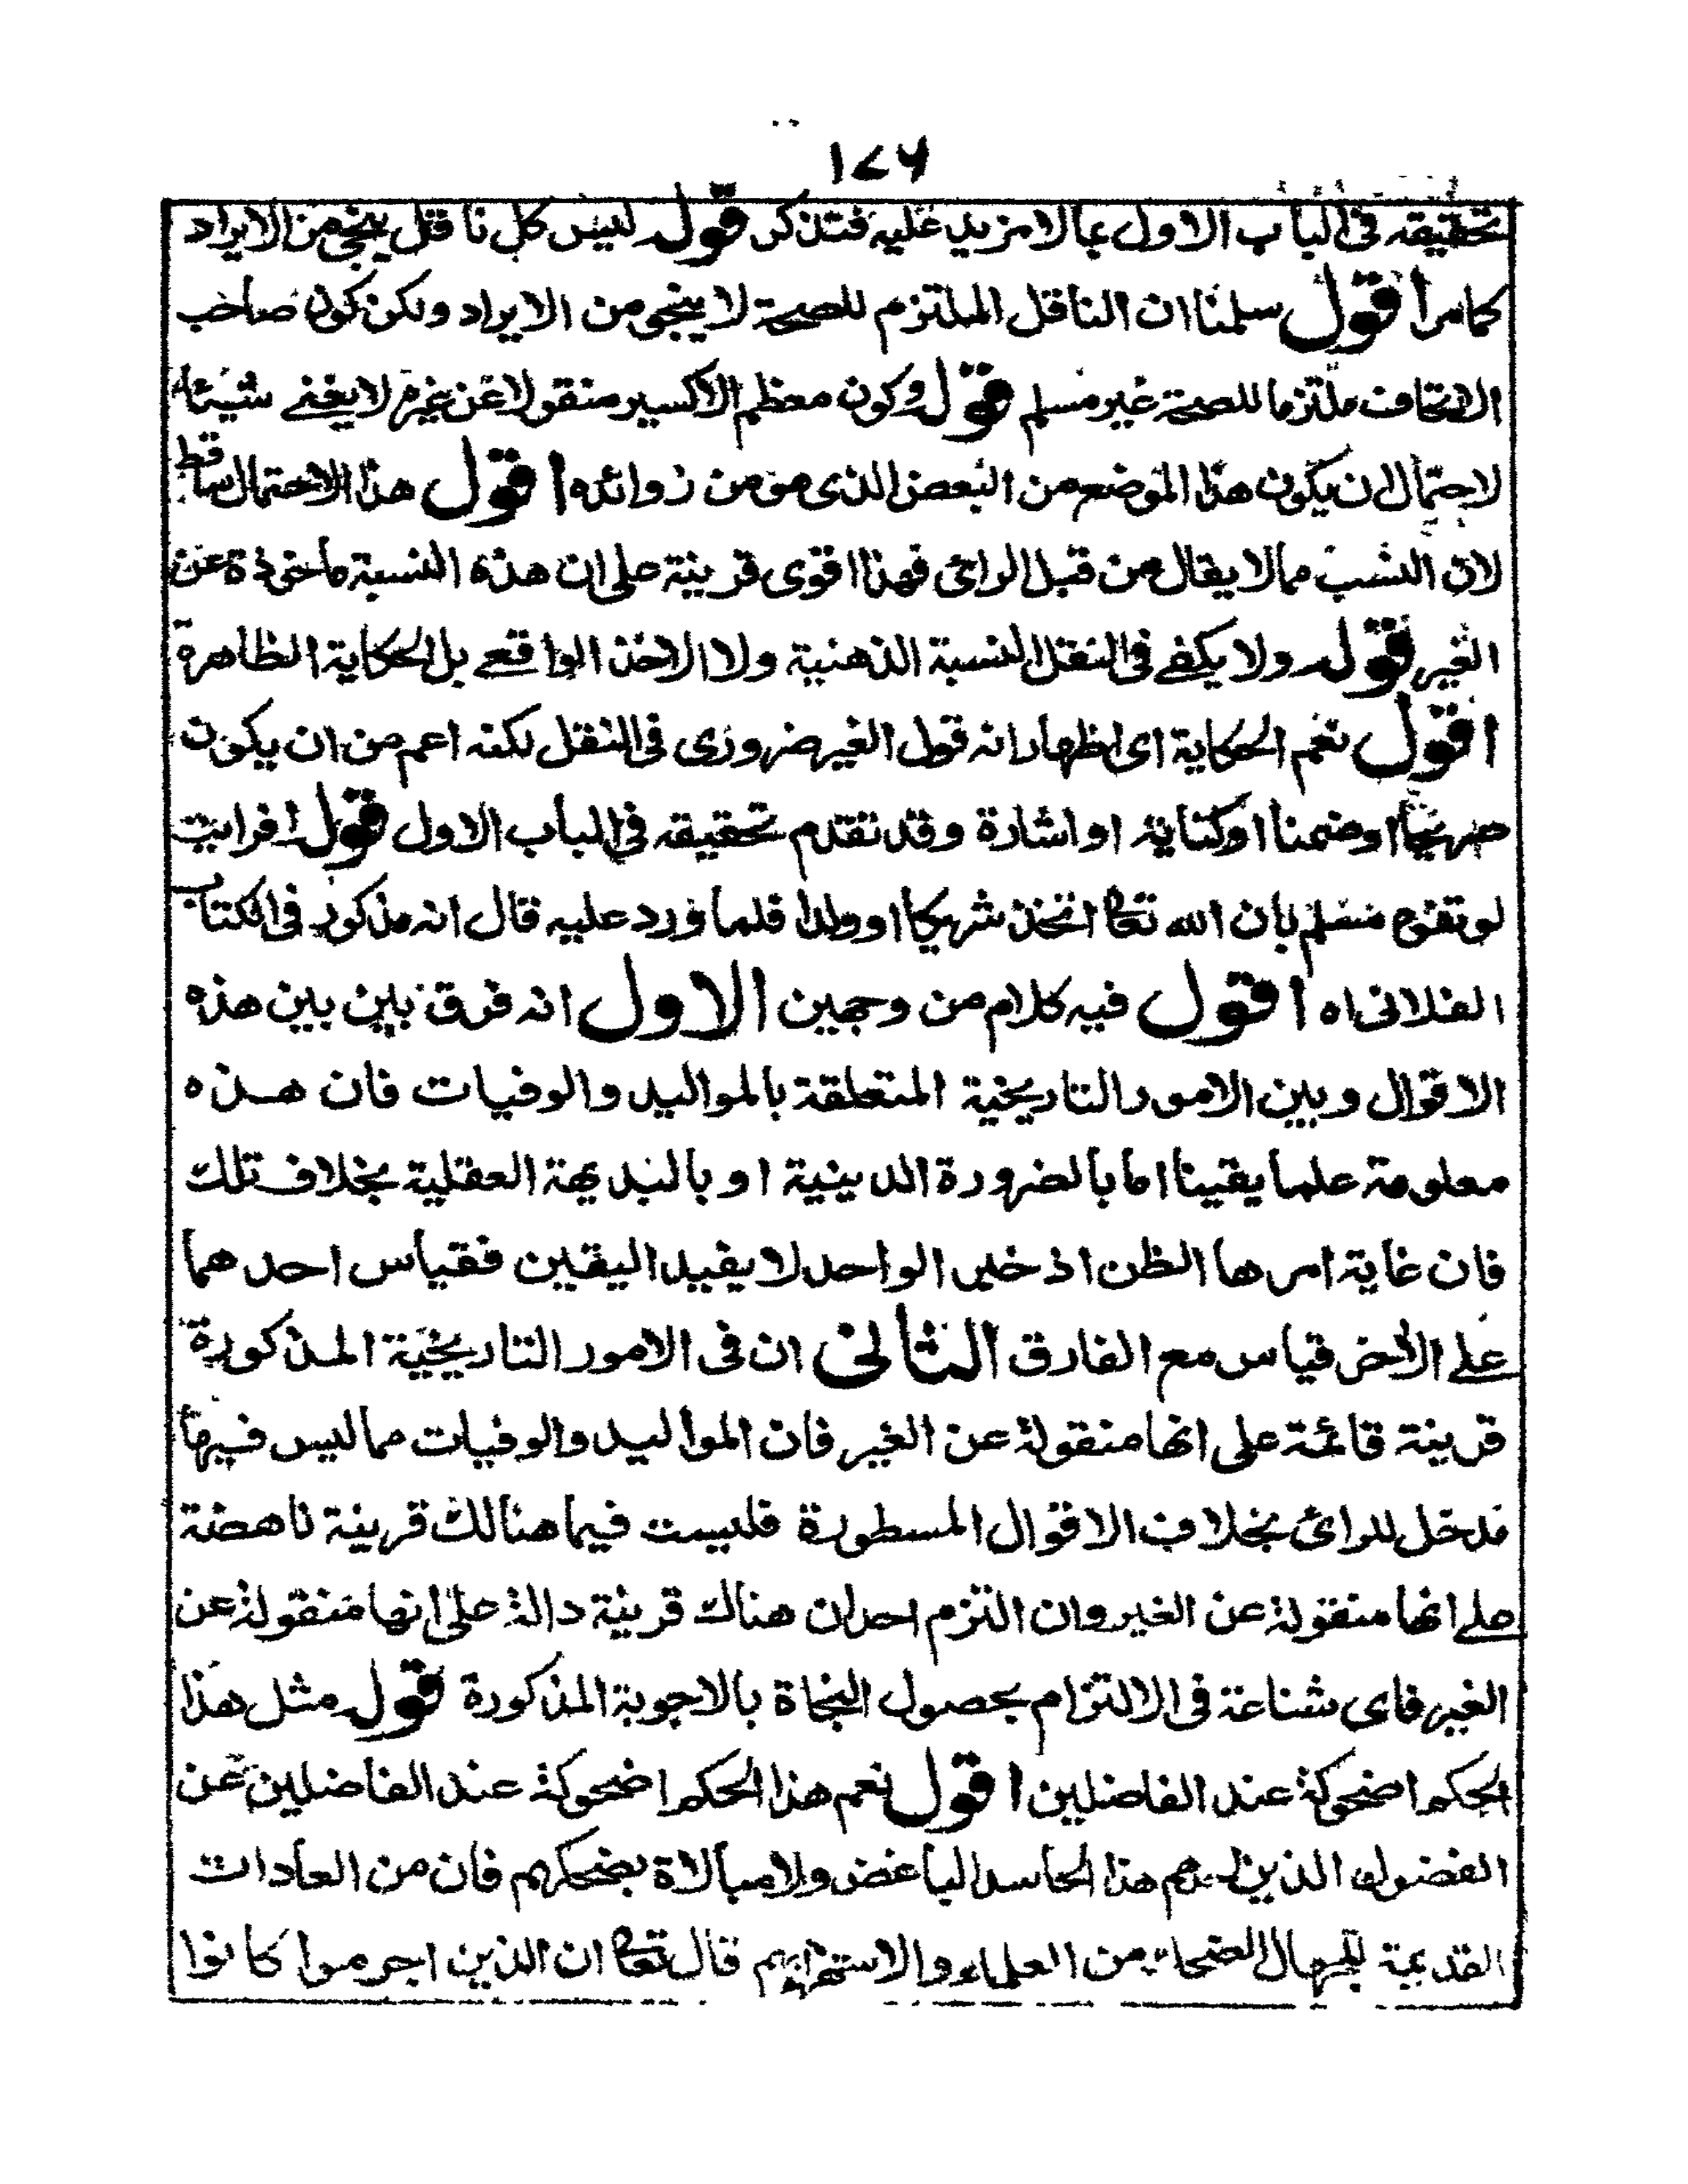 ۱۷۶
تحقيقه فى الباب الاول بما لا مزيد عليه فتذكر قوله ليس كل ناقل ينجى من الايراد
كما مر اقول سلمنا ان الناقل الملتزم للصحة لا ينجى من الايراد ولكن كون صاحب
الاتحاف ملتزما للصحة غير مسلم قوله وكون معظم الاكسير منقولا عن غيره لا يغنى شيئا
لاحتمال ان يكون هذا الموضع من البعض الذى هو من زوائده اقول هذا الاحتمال ساقط
لان النسب مما لا يقال من قبل الرائى فهذا اقوى قرينة على ان هذه النسبة ماخوذة عن
الغير قوله ولا يكفى فى النقل النسبة الذهنية ولا الاخذ الواقعى بل الحكاية الظاهرة
اقول نعم الحكاية اى اظهار انه قول الغير ضرورى فى النقل لكنه اعم من ان يكون
صريحا او ضمنا او كناية او اشارة وقد تقدم تحقيقه فى الباب الاول قوله افرايت
لو تفوه مسلم بان الله تعالى اتخذ شريكا او ولدا فلما ورد عليه قال انه مذكور فى الكتاب
الفلانى اه اقول فيه كلام من وجهين الاول انه فرق بين بين هذه
الاقوال وبين الامور التاريخية المتعلقة بالمواليد والوفيات فان هذه
معلومة علما يقينا اما بالضرورة الدينية او بالبديهة العقلية بخلاف تلك
فان غاية امرها الظن اذ خبر الواحد لا يفيد اليقين فقياس احدهما
على الأخر قياس مع الفارق الثانى ان فى الامور التاريخية المذكورة
قرينة قائمة على انها منقولة عن الغير فان المواليد والوفيات مما ليس فيها
مدخل للرائى بخلاف الاقوال المسطورة فليست فيما هنالك قرينة ناهضة
على انها منقولة عن الغير وان التزم احد ان هناك قرينة دالة على انها منقولة عن
الغير فاى شناعة فى الالتزام بحصول النجاة بالاجوبة المذكورة قوله مثل هذا
الحكم اضحوكة عند الفاضلين اقول نعم هذا الحكم اضحوكة عند الفاضلين عن
الفضول الذين هذا الحاسد الباغض ولا مبالاة بضحكهم فان من العادات
القديمة للجهال الضحك من العلماء والاستهزاء بهم قال تعالى ان الذين اجرموا كانوا